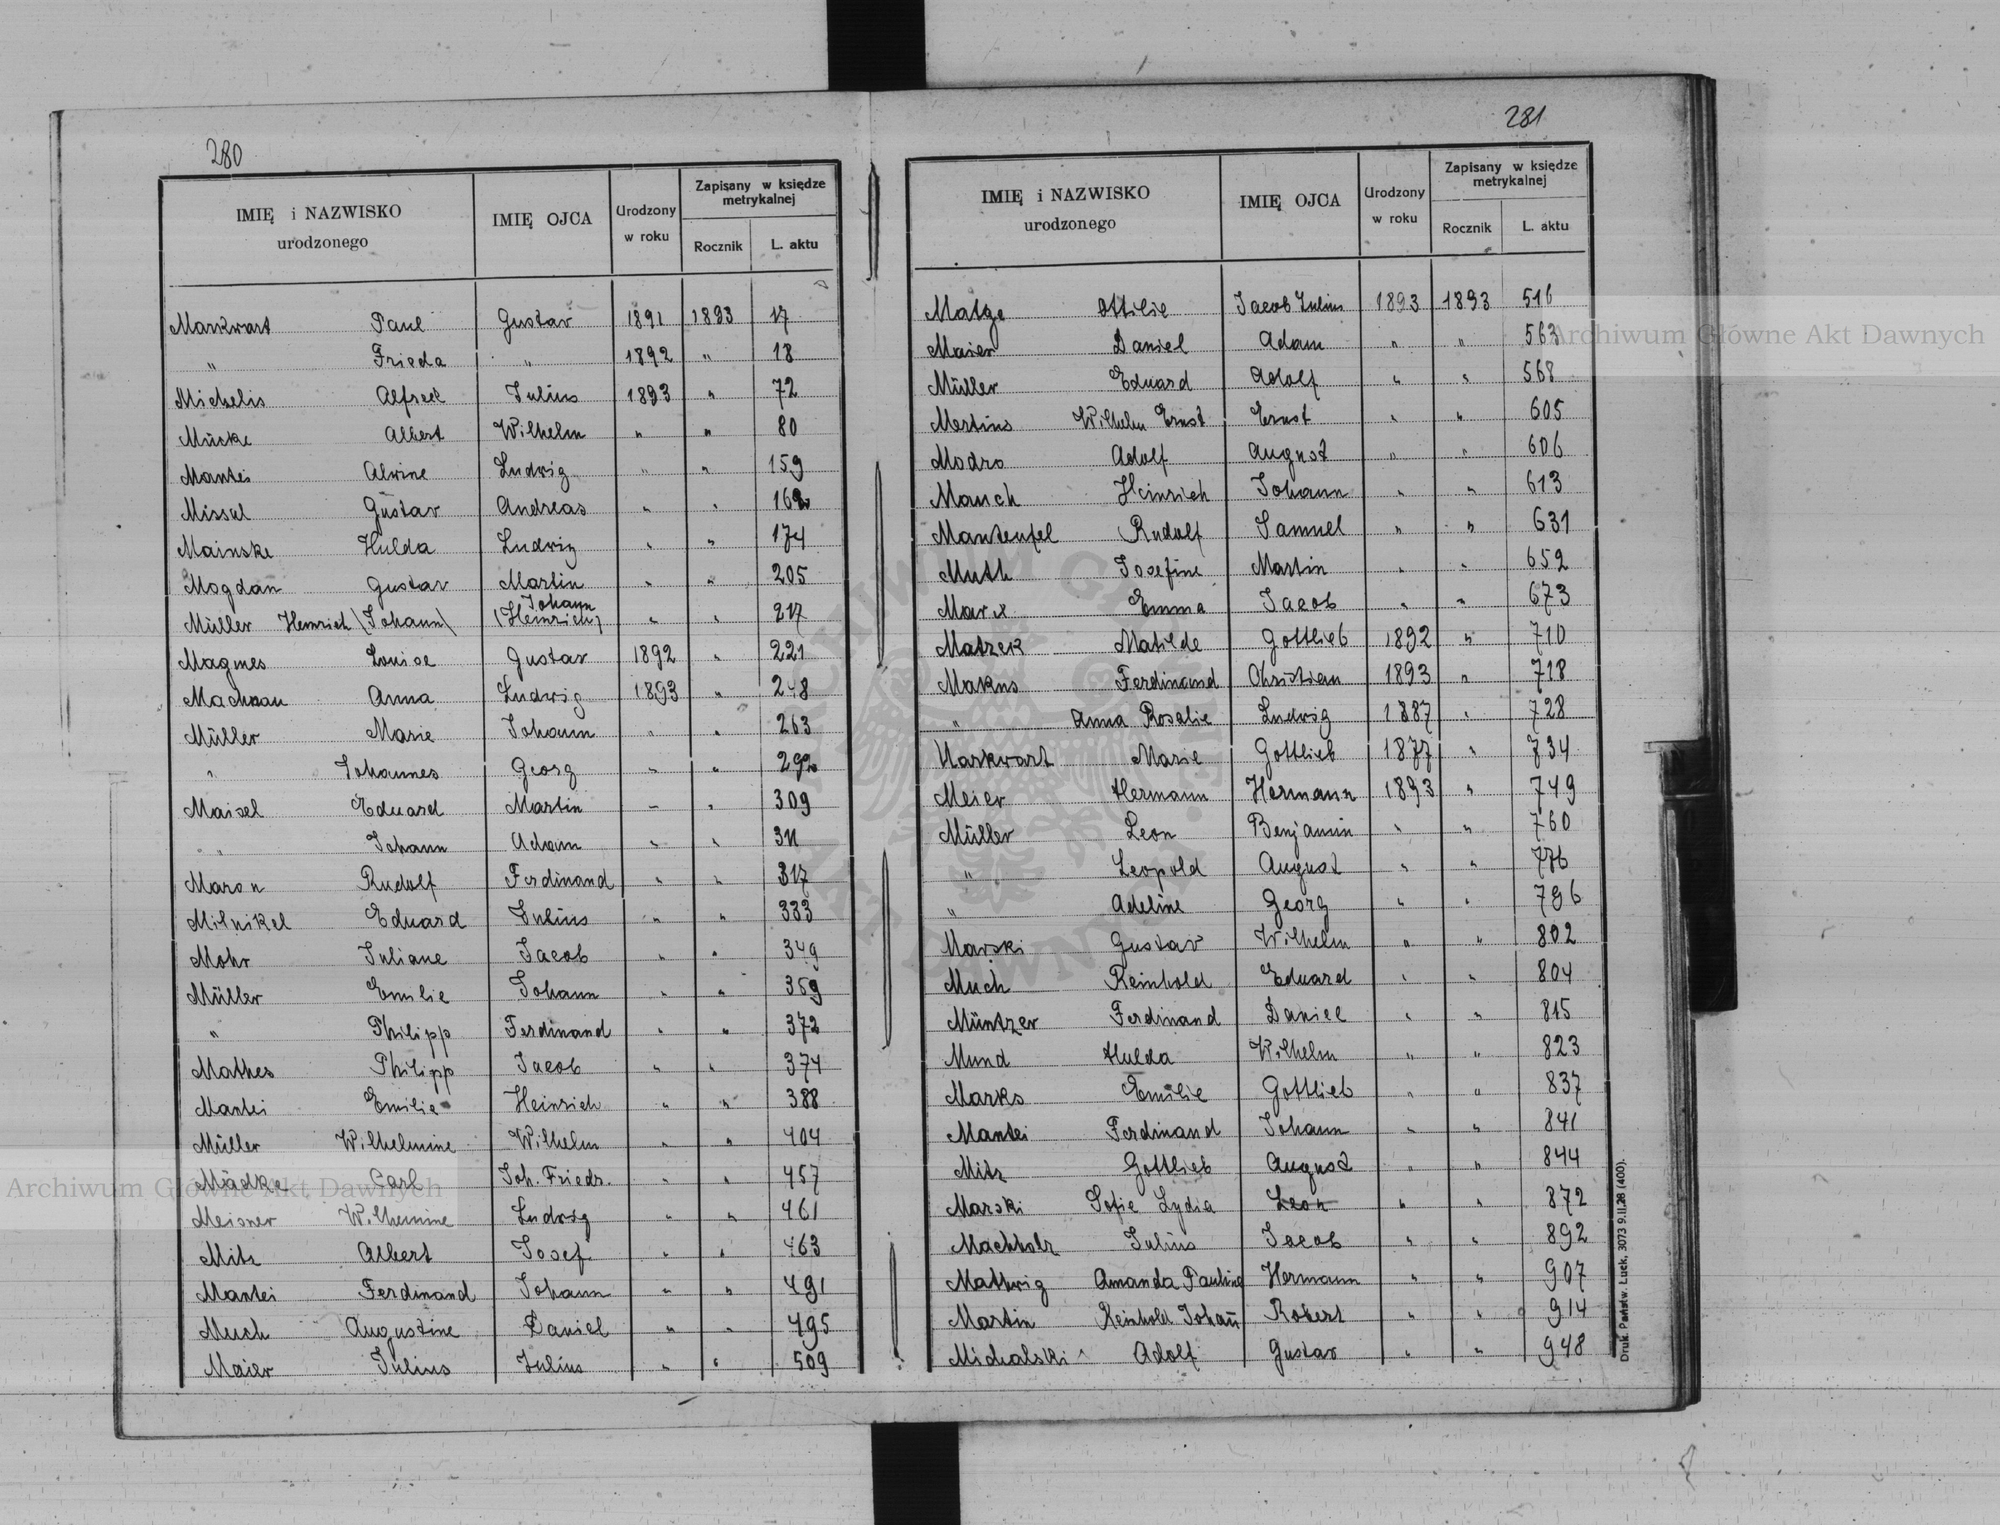 280
IMIĘ i NAZWISKO urodzonego IMIĘ OJCA Urodzony w roku Zapisany w księdze metrykalnej Rocznik L. aktu
Markwart Paul Gustav 1891 1893 17
" Frieda " 1892 " 18
Michelis Alfred Julius 1893 " 72
Mücke Albert Wilhelm " " 80
Mantei Alwine Ludwig " " 159
Missal Gustav Andreas " "
Mainske Hulda Ludwig " " 174
Mogdan Gustav Martin " " 205
Müller Heinrich (Johann) Johann (Heinrich) " " 217
Magnes Louise Gustav 1892 " 221
Machnau Anna Ludwig 1893 " 248
Müller Marie Johann " " 263
" Johannes Georg " "
Maisel Eduard Martin " " 309
" Johann Adam " " 311
Maron Rudolf Ferdinand " " 317
Milnikel Eduard Julius " " 333
Mohr Juliane Jacob " " 349
Müller Emilie Johann " " 359
" Philipp Ferdinand " " 372
Mathes Philipp Jacob " " 374
Mantei Emilie Heinrich " " 388
Müller Wilhelmine Wilhelm " " 404
Mädke Carl Joh. Friedr. " " 457
Meisner Wilhemine Ludwig " " 461
Mitz Albert Josef " " 463
Mantei Ferdinand Johann " " 491
Much Augustine Daniel " " 495
Maier Julius Julius " " 509
281
IMIĘ i NAZWISKO urodzonego IMIĘ OJCA Urodzony w roku Zapisany w księdze metrykalnej Rocznik L. aktu
Matze Ottilie Jacob Julius 1893 1893 516
Maier Daniel Adam " " 563
Müller Eduard Adolf " " 568
Mertins Wilhelm Ernst Ernst " " 605
Modro Adolf August " " 606
Mauch Heinrich Johann " " 613
Manteufel Rudolf Samuel " " 631
Muth Josefine Martin " " 652
Marx Emma Jacob " " 673
Matzek Matilde Gottlieb 1892 " 710
Makus Ferdinand Christian 1893 " 718
" Anna Rosalie Ludwig 1887 " 728
Markwart Marie Gottlieb 1877 " 734
Meier Hermann Hermann 1893 " 749
Müller Leon Benjamin " " 760
" Leopold August " " 776
" Adeline Georg " " 796
Marski Gustav Wilhelm " " 802
Much Reinhold Eduard " " 804
Müntzer Ferdinand Daniel " " 815
Mund Hulda Wilhelm " " 823
Marks Emilie Gottlieb " " 837
Mantei Ferdinand Johann " " 841
Mitz Gottlieb August " " 844
Marski Sofie Lydia Leon " " 872
Machholz Julius Jacob " " 892
Mattwig Amanda Pauline Hermann " " 907
Martin Reinhold Johan̄ Robert " " 914
Michalski Adolf Gustav " " 948
Druk. Państw. Łuck. 3073 9.II.28 (400).
Archiwum Główne Akt Dawnych
Archiwum Główne Akt Dawnych
ARCHIWUM GŁÓWNE AKT DAWNYCH